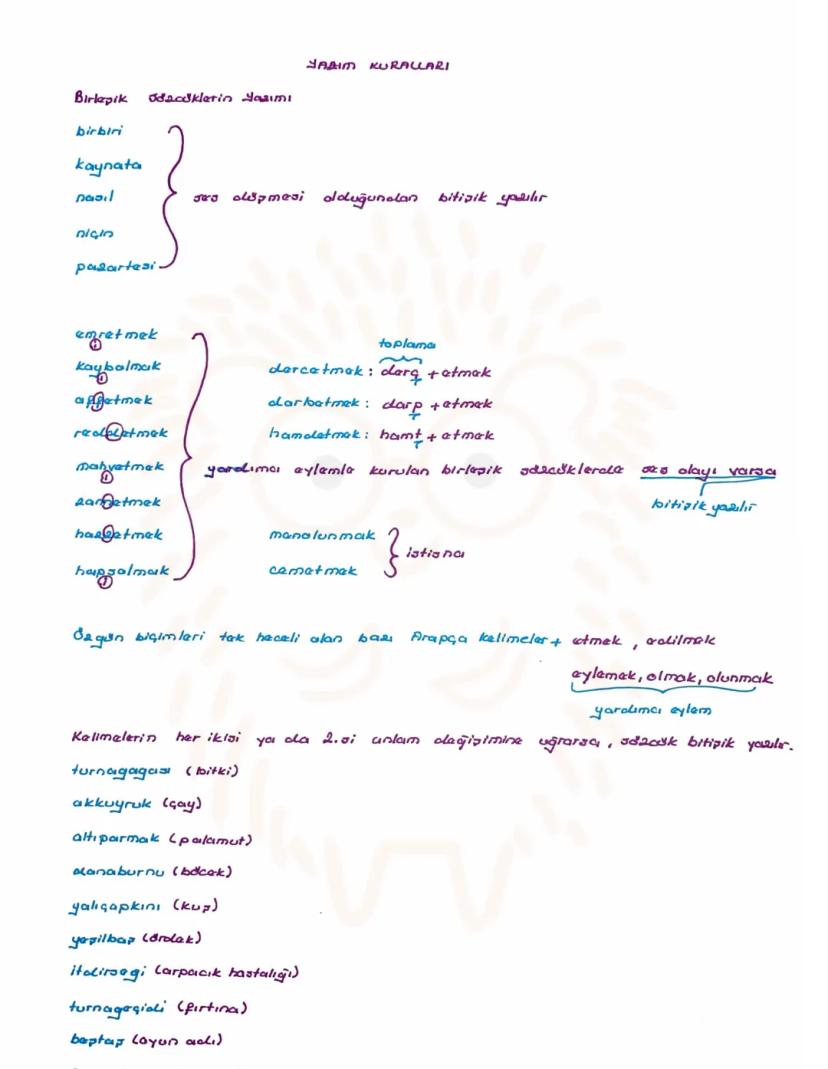 YAZIM KURALLARI
Birleşik Sözcüklerin Yazımı
birbiri
kaynata
nasıl
ses düşmesi olduğundan bitişik yazılır
niçin
pazartesi
emretmek
toplama
kaybolmak
i
dercetmek: derç + etmek
affetmek
ı
darbetmek: darp + etmek
reddetmek
hamdetmek: hamt + etmek
mahvetmek
yardımcı eylemle kurulan birleşik sözcüklerde ses olayı varsa
ı
zannetmek
bitişik yazılır
hazzetmek
menolunmak
istisna
hapsolmak
cemetmek
i
Özgün biçimleri tek heceli olan bazı Arapça kelimeler + etmek, edilmek
eylemek, olmak, olunmak
yardımcı eylem
Kelimelerin her ikisi ya da 2.si anlam değişimine uğrarsa, sözcük bitişik yazılır.
turnagagası (bitki)
akkuyruk (çay)
altıparmak (palamut)
danaburnu (böcek)
yalıçapkını (kuş)
yeşilbaş (ördek)
itdirseği (arpacık hastalığı)
turnageçidi (fırtına)
beştaş (oyun adı)